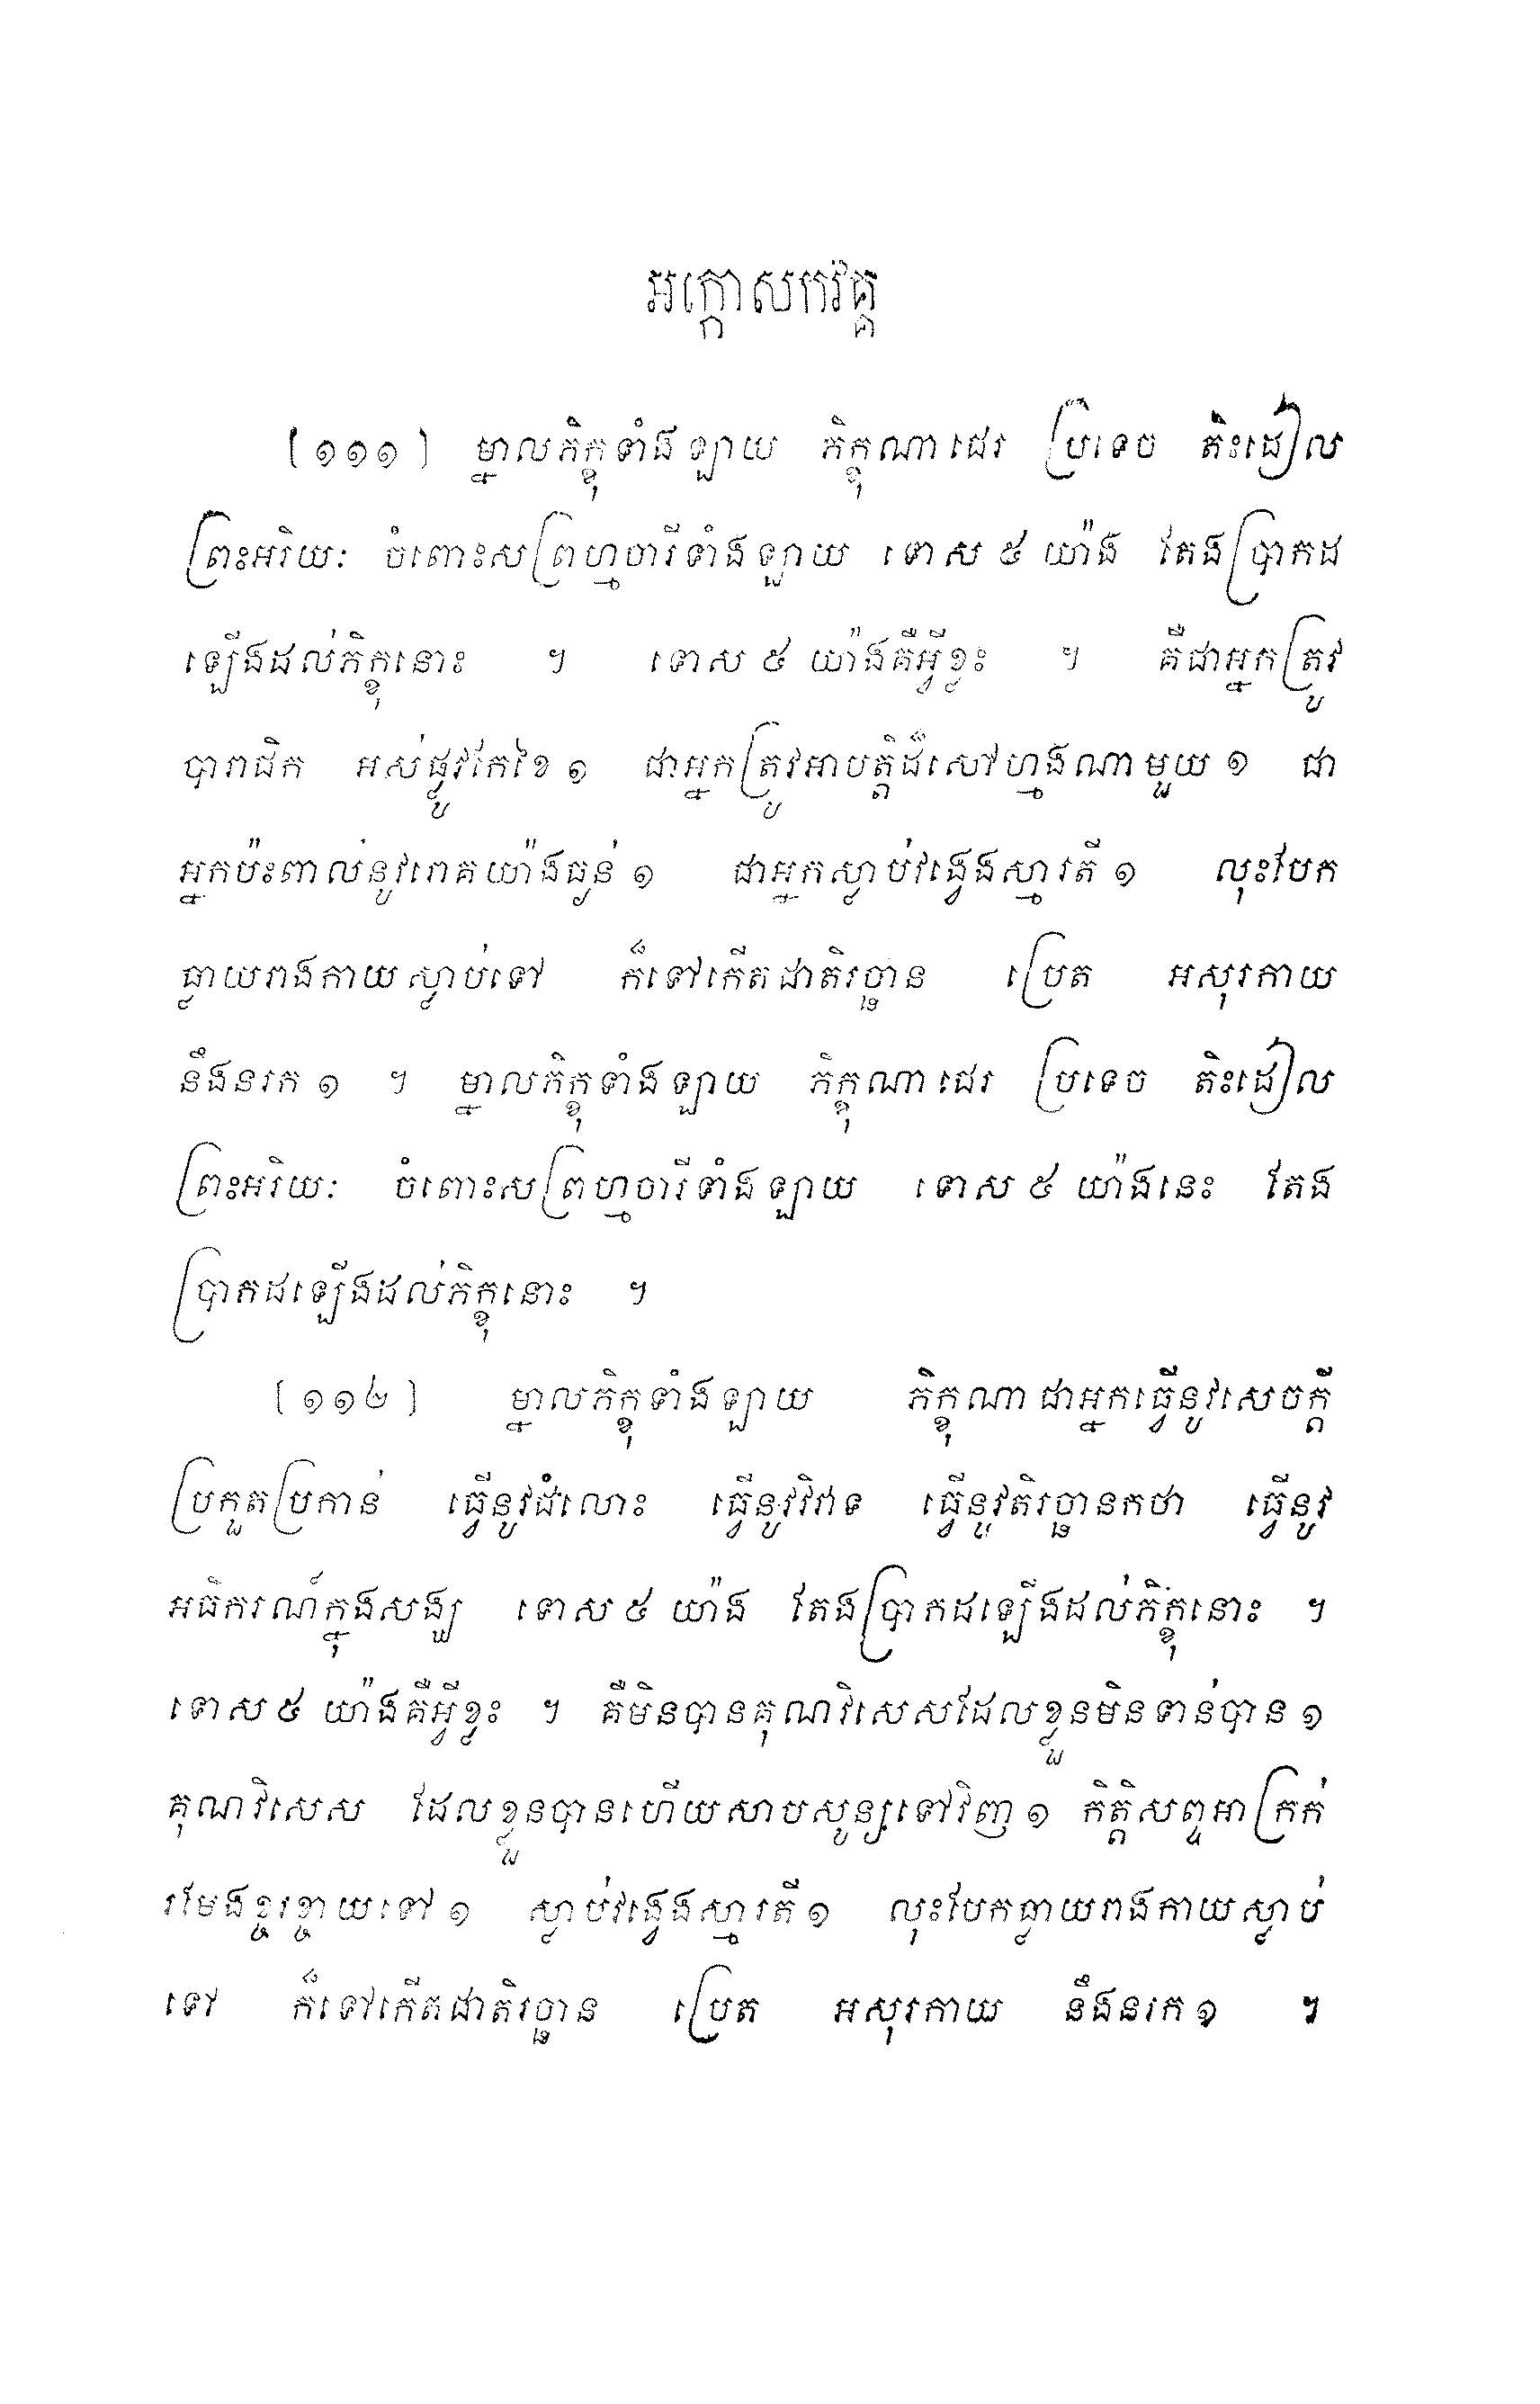 អក្កោសកវគ្គ
(១១១) ម្នាលភិក្ខុទាំងឡាយ ភិក្ខុណាជេរ ប្រទេច តិះដៀល
ព្រះអរិយៈ ចំពោះសព្រហ្មចារីទាំងឡាយ ទោស ៥ យ៉ាង តែងប្រាកដ
ឡើងដល់ភិក្ខុនោះ ។ ទោស ៥ យ៉ាងគឺអ្វីខ្លះ ។ គឺជាអ្នកត្រូវ
បារាជិក អស់ផ្លូវកែខៃ ១ ជាអ្នកត្រូវអាបត្តិដ៏សៅហ្មងណាមួយ ១ ជា
អ្នកប៉ះពាល់នូវរោគយ៉ាងធ្ងន់ ១ ជាអ្នកស្លាប់វង្វេងស្មារតី ១ លុះបែក
ធ្លាយរាងកាយស្លាប់ទៅ ក៏ទៅកើតជាតិរច្ឆាន ប្រេត អសុរកាយ
នឹងនរក ១ ។ ម្នាលភិក្ខុទាំងឡាយ ភិក្ខុណាជេរ ប្រទេច តិះដៀល
ព្រះអរិយៈ ចំពោះសព្រហ្មចារីទាំងឡាយ ទោស ៥ យ៉ាងនេះ តែង
ប្រាកដឡើងដល់ភិក្ខុនោះ ។
(១១២) ម្នាលភិក្ខុទាំងឡាយ ភិក្ខុណាជាអ្នកធ្វើនូវសេចក្តី
ប្រកួតប្រកាន់ ធ្វើនូវជំលោះ ធ្វើនូវវិវាទ ធ្វើនូវតិរច្ឆានកថា ធ្វើនូវ
អធិករណ៍ក្នុងសង្ឃ ទោស ៥ យ៉ាង តែងប្រាកដឡើងដល់ភិក្ខុនោះ ។
ទោស ៥ យ៉ាងគឺអ្វីខ្លះ ។ គឺមិនបានគុណវិសេសដែលខ្លួនមិនទាន់បាន ១
គុណវិសេស ដែលខ្លួនបានហើយសាបសូន្យទៅវិញ ១ កិត្តិសព្ទអាក្រក់
រមែងខ្ចរខ្ចាយទៅ ១ ស្លាប់វង្វេងស្មារតី ១ លុះបែកធ្លាយរាងកាយស្លាប់
ទៅ ក៏ទៅកើតជាតិរច្ឆាន ប្រេត អសុរកាយ នឹងនរក ១ ។